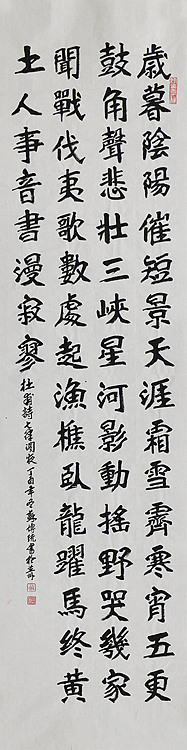 歲暮陰陽催短景天涯霜雪霽寒宵五更
鼓角聲悲壯三峽星河影動搖野哭幾家
聞戰伐夷歌數處起漁樵臥龍躍馬終黃
土人事音書漫寂寥
杜翁詩七律閣夜丁酉年